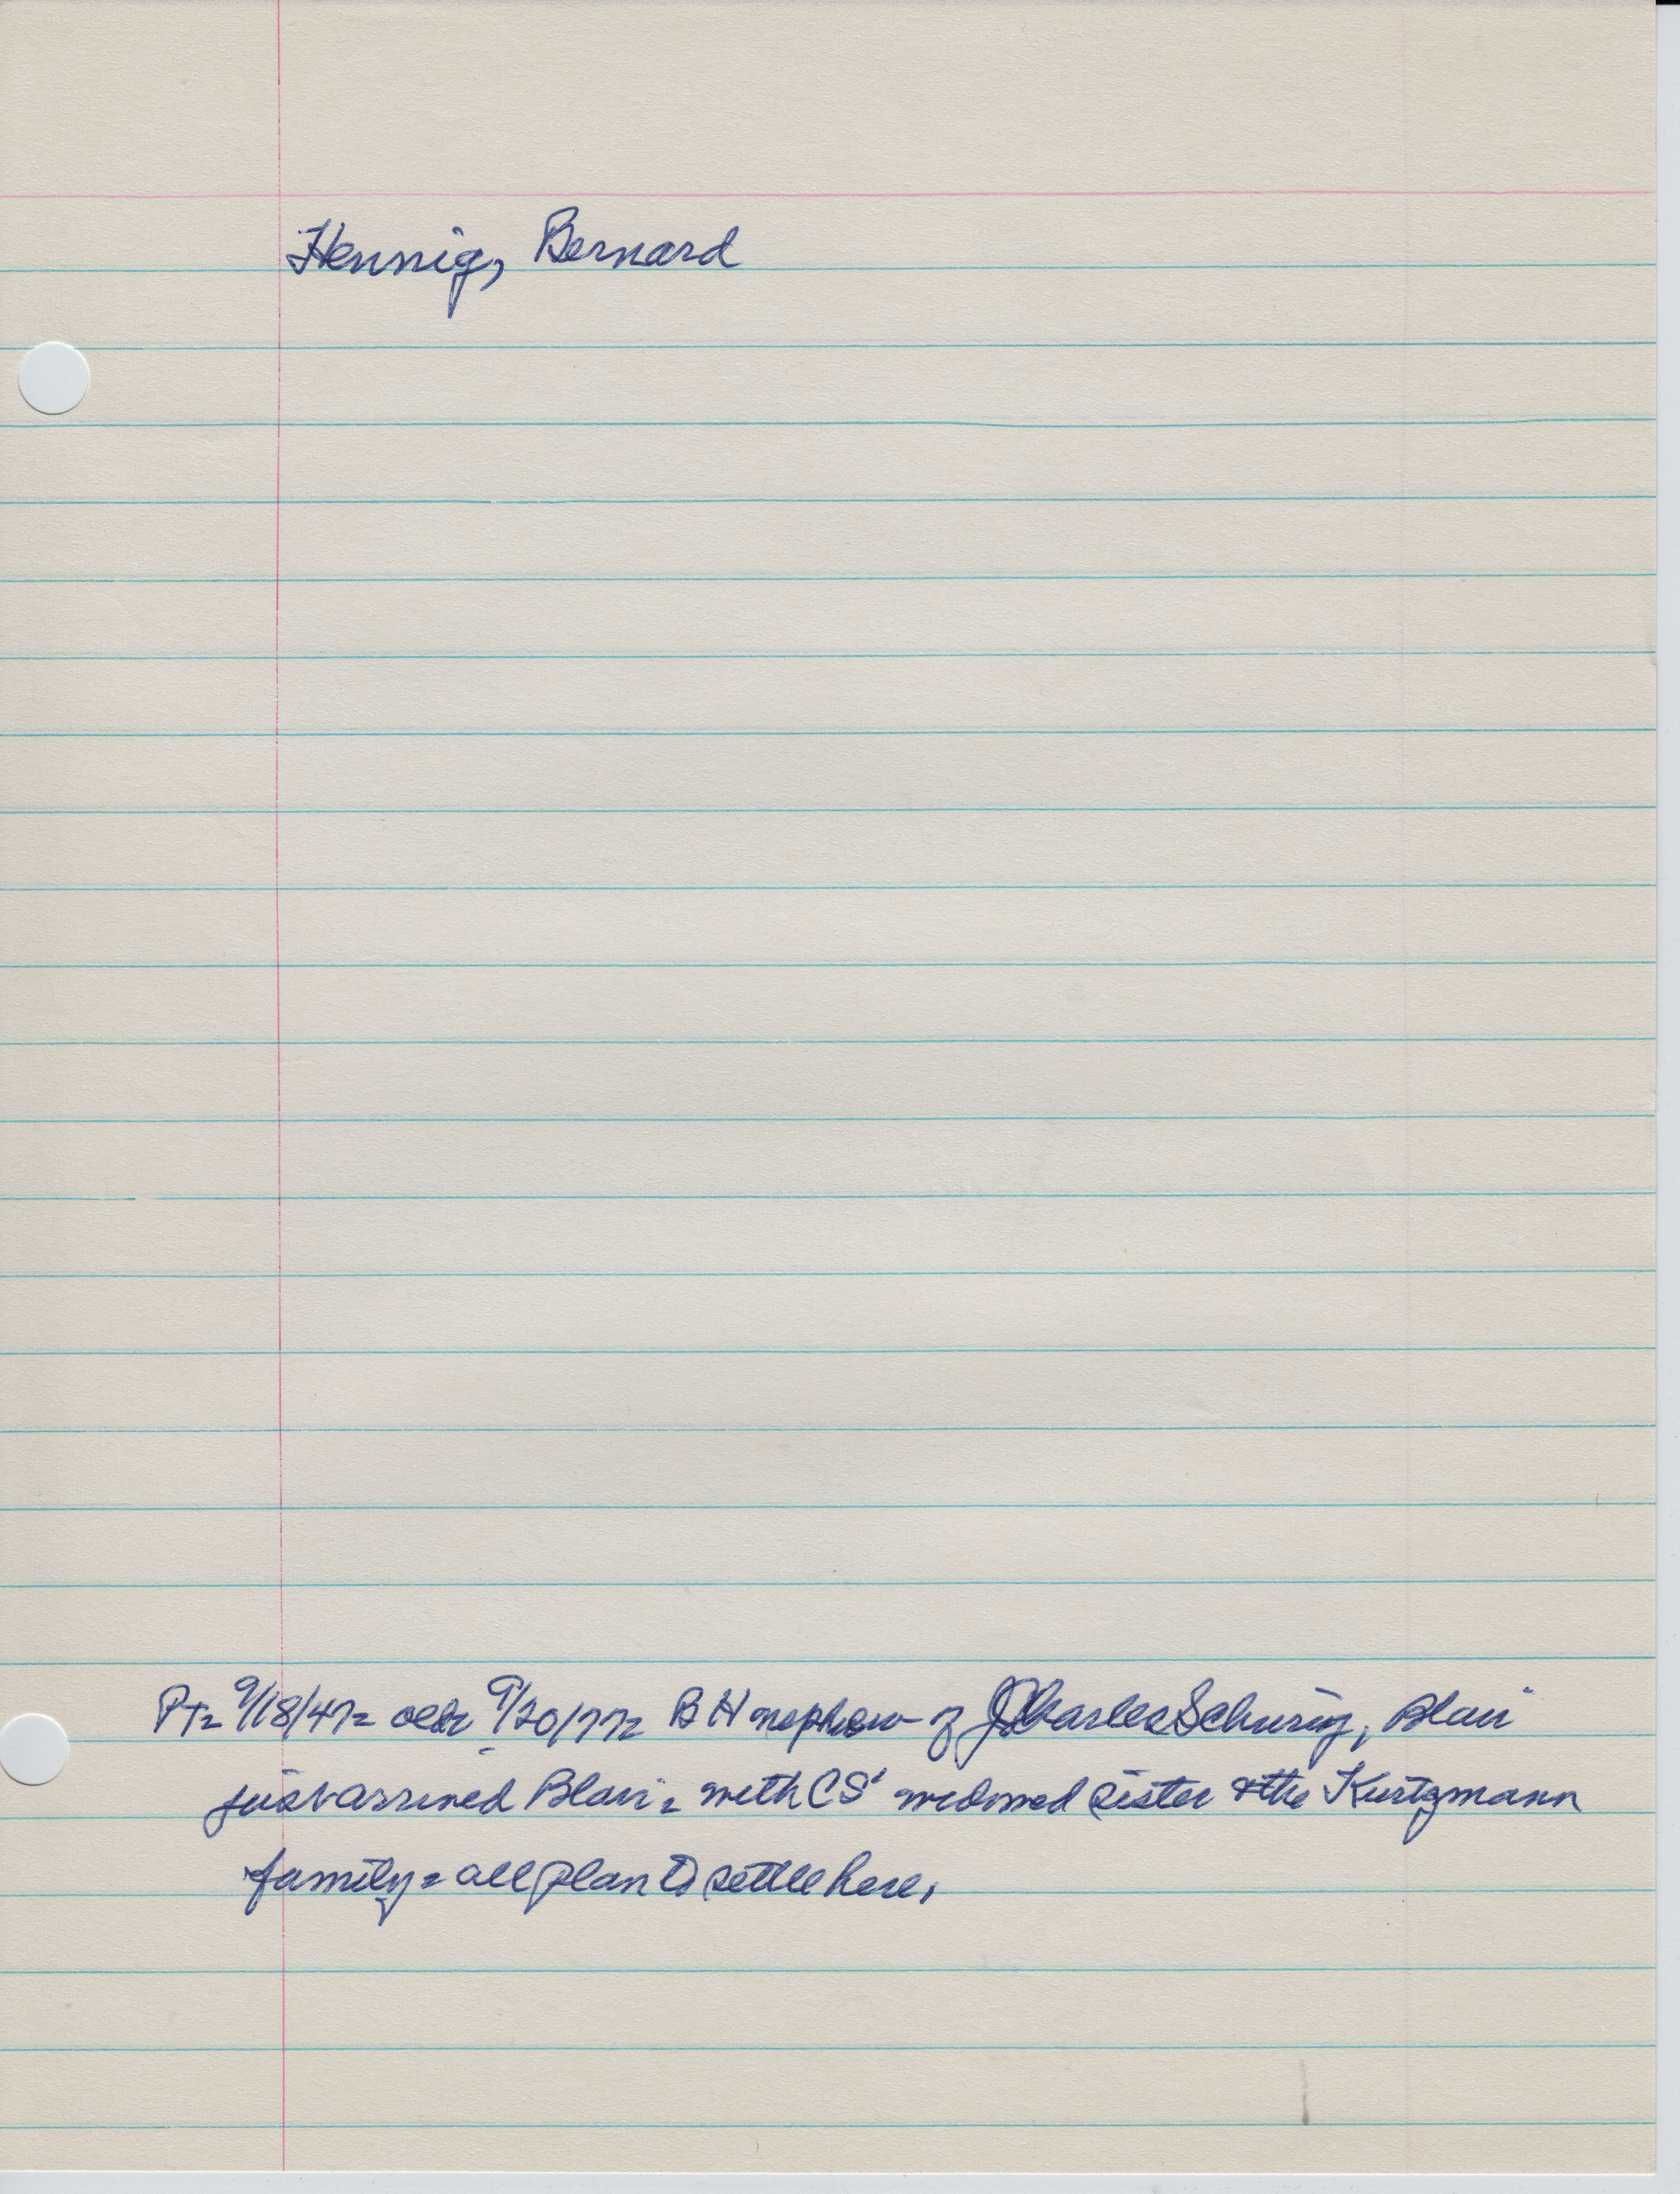 Hennig, Bernard
PT= 9/18/47= 9/20/77= B H nephew of Charles Schurig, Blair
just arrived Blair = with CS' widowed sister & the Kurtzmann
family = all plan to settle here.